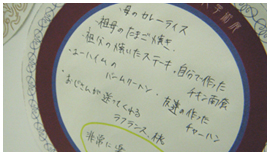 ・母のカレーライス
・祖母のたまご焼き
・祖父の焼いたステーキ
・自分で作ったチキン南蛮
・ユーハイムのバームクーヘン
・友達の作ったチャーハン
・おじさんが送ってくれるラフランス、桃
非常に